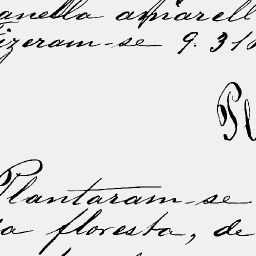 anella amarell
izeram-se 9.310
Pl
Plantaram-se
a floresta, de